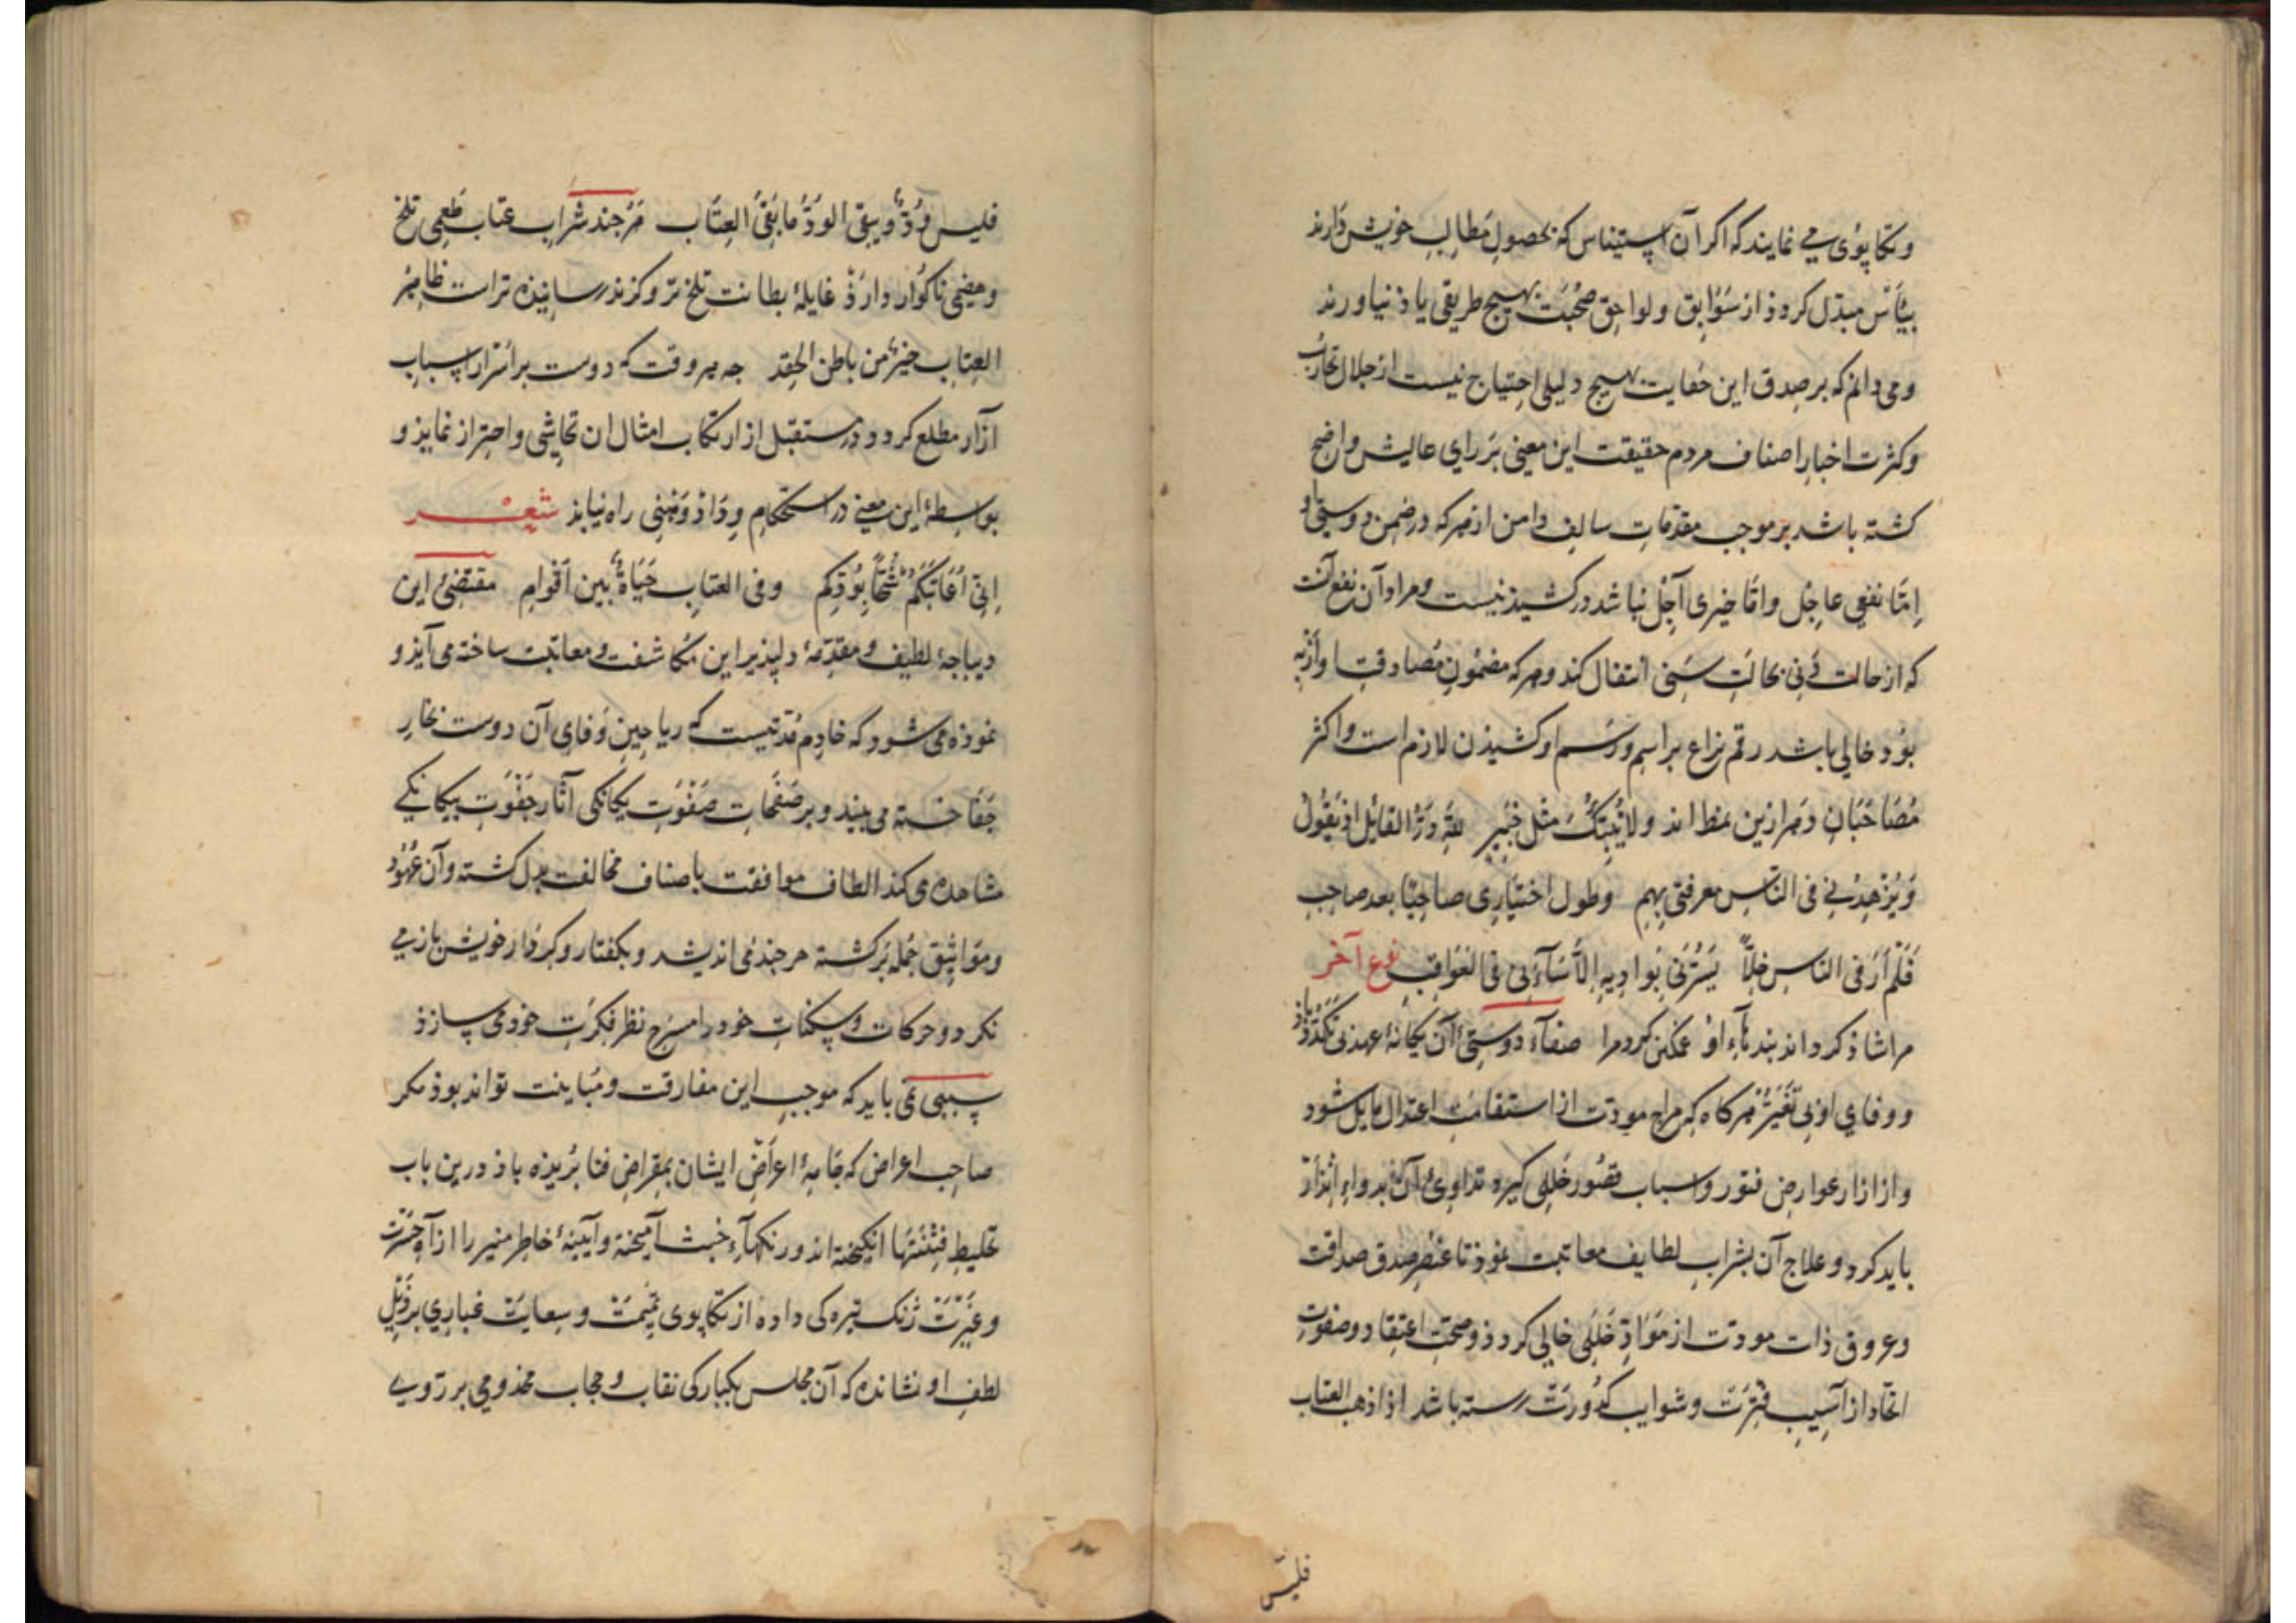 و تکاپوی می نمایند که اکر آن استیناس که بحصول مطالب خویش دارند
بیأس مبدل کردذ از سوابق و لواحق صحبت بهیچ طریقی یاذ نیاورند
و می دانم که بر صدق این حکایت بهیچ دلیلی احتیاج نیست از خلال تجارب
و کثرت اخبار اصناف مردم حقیقت این معنی بر رای عالیش واضح
کشته باشد بر موجب مقدمات سالف دامن از هر که در ضمن دوستی او
إمّا نفعی عاجل و امّا خیری آجل نباشد درکشیذنیست و مراد آن نفع آنست
که از حالت دنی بحالت سنی انتقال کند و هر که مضمون مصادقت او ازین
بوذ خالی باشد رقم نزاع بر اسم و رسم او کشیذن لازم است و اکثر
مصاحبان دهر ازین نمط اند ولا ینبئک مثل خبیر لله درّ القایل اذ یقول
وَیُزهدنی فی الناس معرفتی بهم وطول اختیاری صاحبًا بعد صاحب
فَلَم أرَ فی الناس خِلاًّ یَسُرّنی بَوادیه إلاّ سَآءَنی فی العَواقب نوع آخر
مرا شاذ کرداند بند بآء او غمکن کرد مرا صفآء دوستیٔ آن یکانهٔ عهد بی تکدّر باذ
و وفای او بی تغیّر هرکاه که مزاج مودت از استقامت اعتدال مایل شود
و از ازار عوارض فتور و اسباب قصور خللی کیرد تداویٔ آن بدواء إنذار
باید کرد و علاج آن بشراب لطایف معاتبت نموذ تا عنصر صدق صداقت
و عروق ذات مودت از موادّ خللی خالی کردذ و صحت اعتقاد و صفوت
اتحاد از آسیب فترت و شوایب کدورت رسته باشد اذا ذهب العتاب
فلیس
فلیس وُدٌّ ویبقی الوُدُّ ما بَقیَ العِتاب هرجند شراب عتاب طعمی تلخ
و هضمی ناکوار دارذ غایلهٔ بطانت تلخ تر و کزند رسانیذه تراست ظاهر
العتاب خیرٌ من باطن الحقد جه هر وقت که دوست بر اسرار اسباب
آزار مطلع کردد و در مستقبل از ارتکاب امثال ان تحاشی و احتراز نمایذ و
بواسطهٔ این معنی در استحکام وداذ وهنی راه نیابذ شعر
إنّی اُعاتبکم شُحًّا بِوُدّکم وفی العتاب حَیَاةٌ بین اَقوام مقتضیٔ این
دیباجهٔ لطیف و مقدّمهٔ دلپذیر این مکاشفت و معاتبت ساخته می آیذ و
نموذه می شود که خادم مدتیست که ریاحین وفای آن دوست بخار
جفا خسته می بیند و بر صفحات صفوت یکانکی آثار جفوت بیکانکی
مشاهده می کند الطاف موافقت باصناف مخالفت بدل کشته و آن عهود
و مواثیق جمله برکشته هرجند می اندیشد و بکفتار و کردار خویش باز می
نکرد و حرکات و سکنات خود را مسرح نظر فکرت خود می سازذ
سببی نمی یابد که موجب این مفارقت و مباینت تواند بوذ مکر
صاحب اعراض که جامهٔ اعراض ایشان بمقراض فنا بریذه باذ درین باب
تخلیط فتنتها انکیخته اند و رنکهآء خبث آمیخته و آیینهٔ خاطر منیر را از آه حسرت
و غیرت زنک تیرکی داده از تکاپوی نمیمت و سعایت غباری بر ذیل
لطف او نشانده که آن مجلس یکبارکی نقاب و حجاب مخدومی بر روی